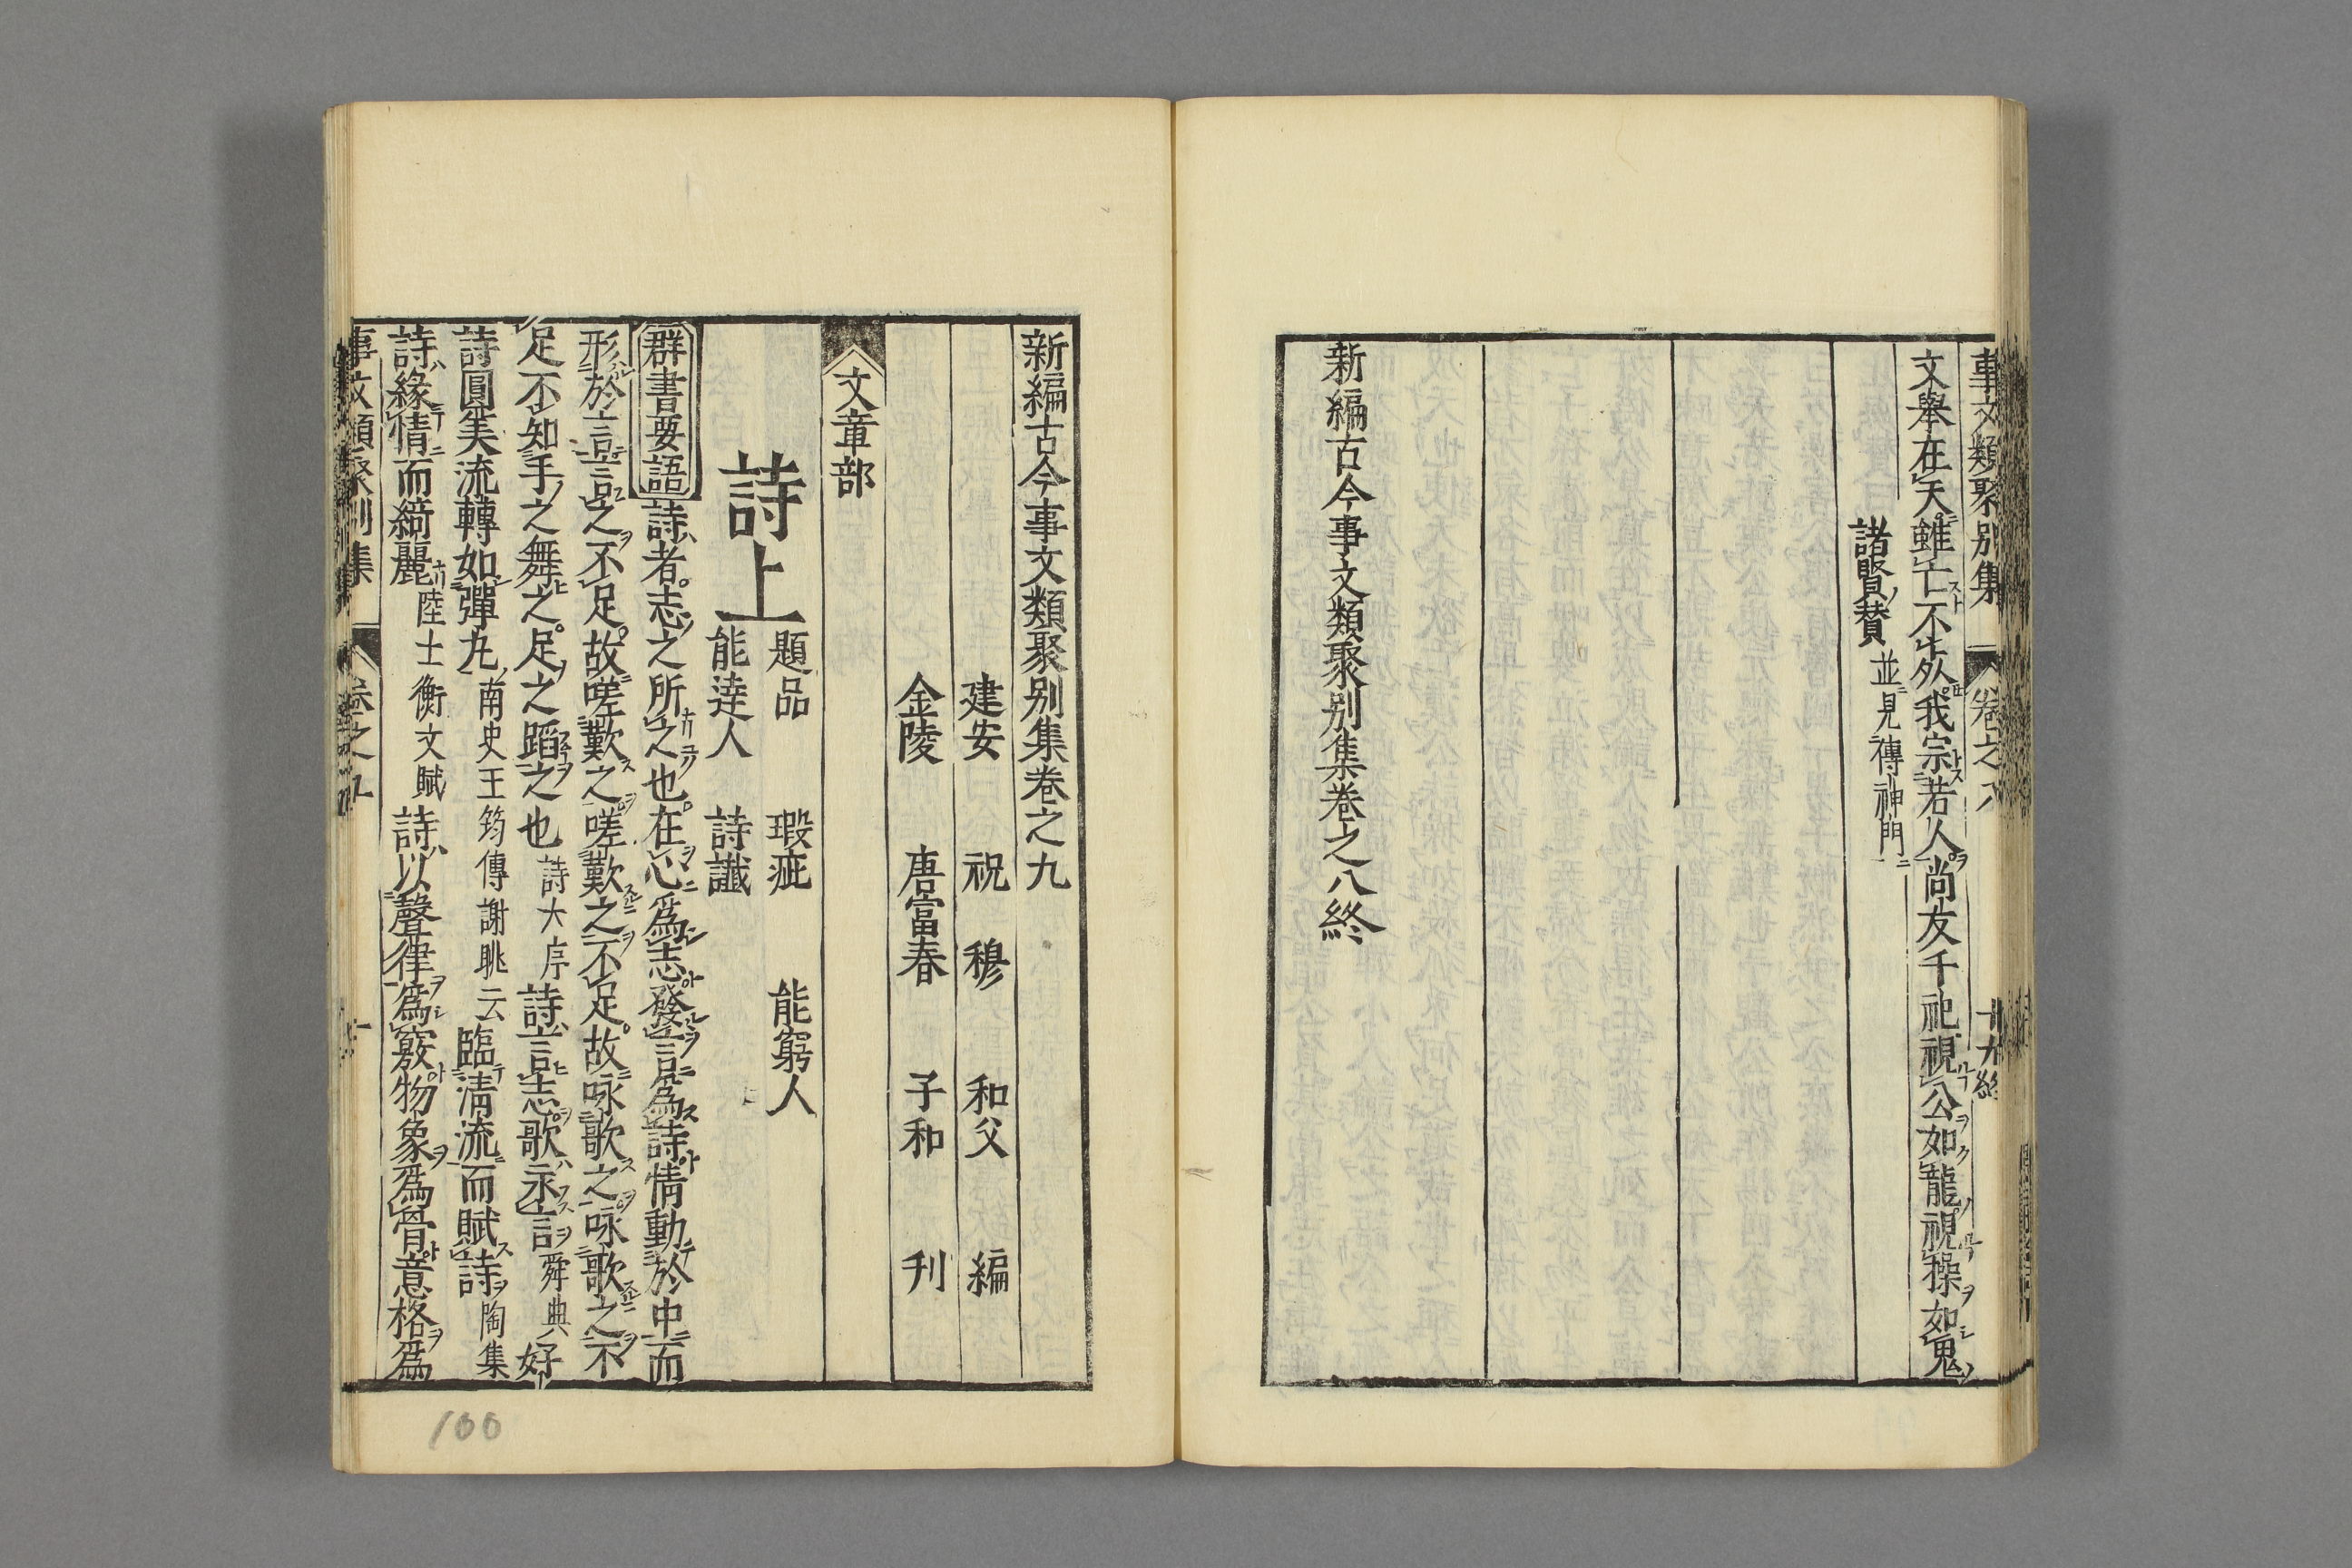 事文類聚別集 卷之八 十九終
文舉在天雖亡不死我宗若人尚友千祀視公如龍視操如鬼
諸賢賛 並見傳神門
新編古今事文類聚別集卷之八終
新編古今事文類聚別集卷之九
建安 祝穆 和父 編
金陵 唐富春 子和 刊
文章部
詩上
題品 瑕疵 能窮人
能達人 詩讖
群書要語 詩者志之所之也在心爲志發言爲詩情動於中而
形於言言之不足故嗟歎之嗟歎之不足故咏歌之咏歌之不
足不知手之舞之足之蹈之也 詩大序 詩言志歌永言 舜典 好
詩圓美流轉如彈丸 南史王筠傳謝眺云 臨淸流而賦詩 陶集
詩緣情而綺麗 陸士衡文賦 詩以聲律爲竅物象爲骨意格爲
事文類聚別集 卷之九 一
100